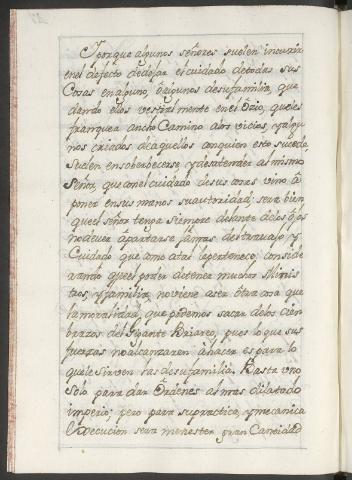 Y porque algunos señores suelen incurrir
en el defecto de dejar el cuidado de todas sus
Cosas en alguno, ò algunos de su familia, que
dando ellos vestialmente en el Ozio, que les
franquea ancho Camino à los vicios, y algu
nos criados de aquellos an quien esto sucede
suelen ensoberbecerse, y desatender al mismo
Señor, que con el cuidado de sus cosas vino â
poner en sus manos su autoridad; sera bien
que el señor tenga siempre delante de los ôjos
no dever âpartarse jàmas del travajo y
Cuidado que como atal le pertenece; conside
rando que el poder detener muchos Minis
tros, y familia, no viene a ser ôtra cosa que
la moralidad, que podemos sacar de los cien
brazos del Gigante Briareo, pues lo que sus
fuerzas no alcanzaren à hacer es para lo
que le sirven las de su familia. Basta uno
solo para dar Ôrdenes al mas dilatado
imperio; pero para su practica, y mecanica
Execucion sera menester gran Cantidad